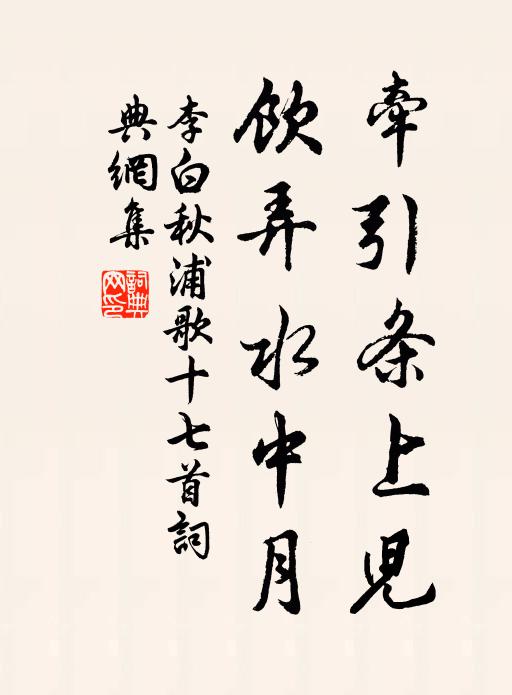 牽引条上児
飲弄水中月
李白秋浦歌十七首詞
典網集
詞典网印